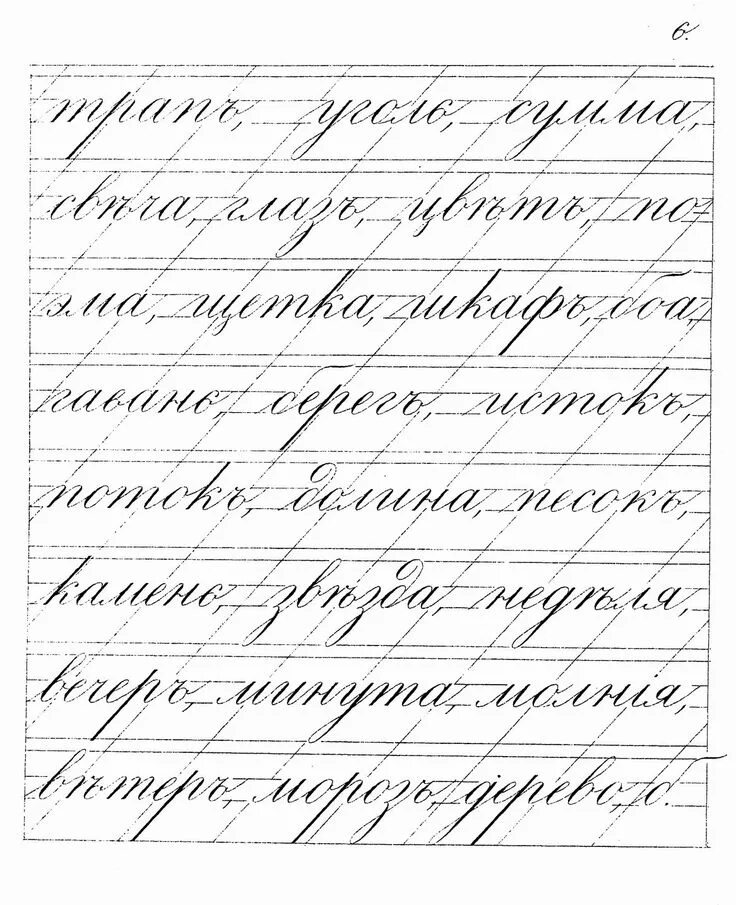 6.
трапъ, уголь, сумма,
свѣча, глазъ, цвѣтъ, по-
эма, щетка, шкафъ, боа,
гавань, берегъ, истокъ,
потокъ, долина, песокъ,
камень, звѣзда, недѣля,
вечеръ, минута, молнія,
вѣтеръ, морозъ, дерево, б.